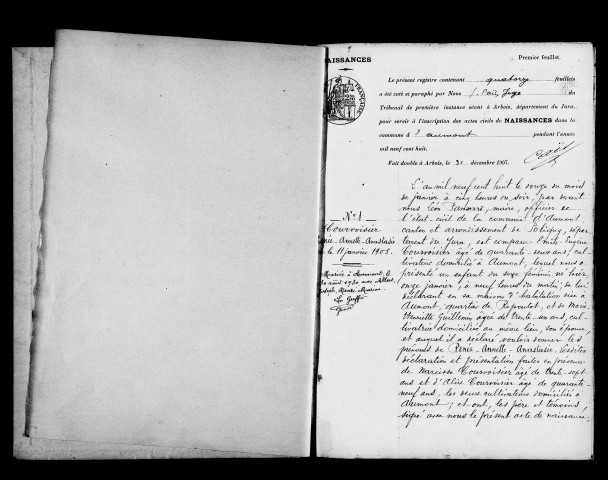 NAISSANCES
Premier feuillet.
Le présent registre contenant quatorze feuillets
a été coté et paraphé par Nous Juge du
Tribunal de première instance séant à Arbois, département du Jura,
pour servir à l'inscription des actes civils de NAISSANCES dans la
commune d'Aumont pendant l'année
mil neuf cent huit.
Fait double à Arbois, le 31 décembre 1907.
N° 1
Courvoisier
Renée-Annette-Anastasie
le 11 janvier 1908.
Mariée à Aumont, le
30 août 1930 avec
Le Greffier
L'an mil neuf cent huit le douze du mois
de janvier à cinq heures du soir, par devant
nous Léon, maire, officier de
l'état-civil de la commune d'Aumont
canton et arrondissement de Poligny, dépar-
tement du Jura, est comparu Emile-Eugène
Courvoisier âgé de quarante-deux ans, cul-
tivateur domicilié à Aumont, lequel nous a
présenté un enfant du sexe féminin né hier
onze janvier, à neuf heures du matin, de lui
déclarant en sa maison d'habitation sise à
Aumont, quartier de, et de Marie
Henriette Guillemin âgée de trente-un ans, cul-
tivatrice domiciliée au même lieu, son épouse,
et auquel il a déclaré vouloir donner les
prénoms de Renée-Annette-Anastasie. Lesdites
déclaration et présentation faites en présence
de Narcisse Courvoisier âgé de trente-sept
ans et d'Alix Courvoisier âgé de quarante-
neuf ans, les deux cultivateurs domiciliés à
Aumont; et ont, les père et témoins,
signé avec nous le présent acte de naissance,